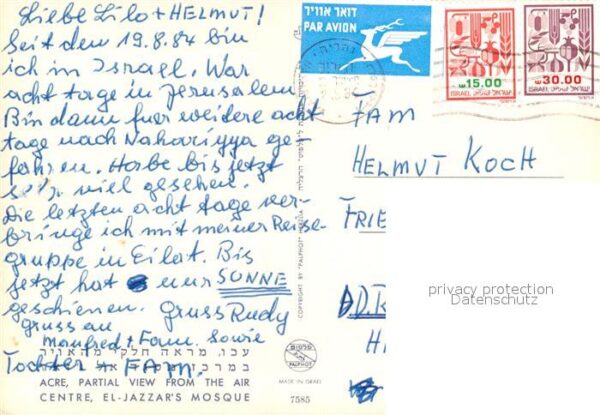 Liebe Lilo + HELMUT!
Seit dem 19.8.84 bin
ich in Israel. War
acht tage in Jerusalem
Bin dann fuer weidere acht
tage nach Nahariyya ge-
fahren. Habe bis jetzt
sehr viel gesehen.
Die letzten acht tage ver-
bringe ich mit meiner Reise-
gruppe in Eilat. Bis
jetzt hat nur SONNE
geschienen. Gruss Rudy
Gruss an
Manfred + Fam. sowie
Tochter + FAM.
עכו, מראה חלקי מהאויר
במרכז
ACRE, PARTIAL VIEW FROM THE AIR
CENTRE, EL-JAZZAR'S MOSQUE
COPYRIGHT BY "PALPHOT"
PALPHOT
MADE IN ISRAEL
7585
דואר אוויר
PAR AVION
15.00
ISRAEL ישראל
30.00
ISRAEL ישראל
FAM
HELMUT KOCH
FRIE
privacy protection
Datenschutz